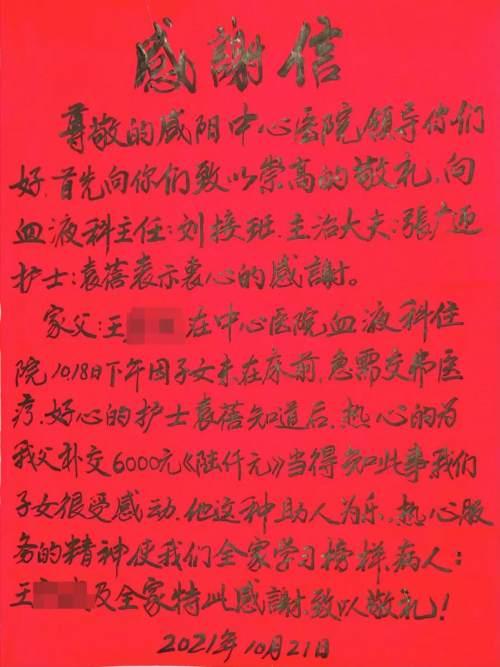 感謝信
尊敬的咸阳中心医院领导你们
好,首先向你们致以崇高的敬礼,向
血液科主任:刘接班,主治大夫:張广迎
护士:袁蓓表示衷心的感謝。
家父:王 在中心医院血液科住
院10.18日下午因子女未在床前,急需交费医
疗,好心的护士袁蓓知道后,热心的为
我父补交6000元《陆仟元》当得知此事我们
子女很受感动,他这种助人为乐,热心服
务的精神使我们全家学习榜样,病人:
王 及全家特此感謝,致以敬礼!
2021年10月21日